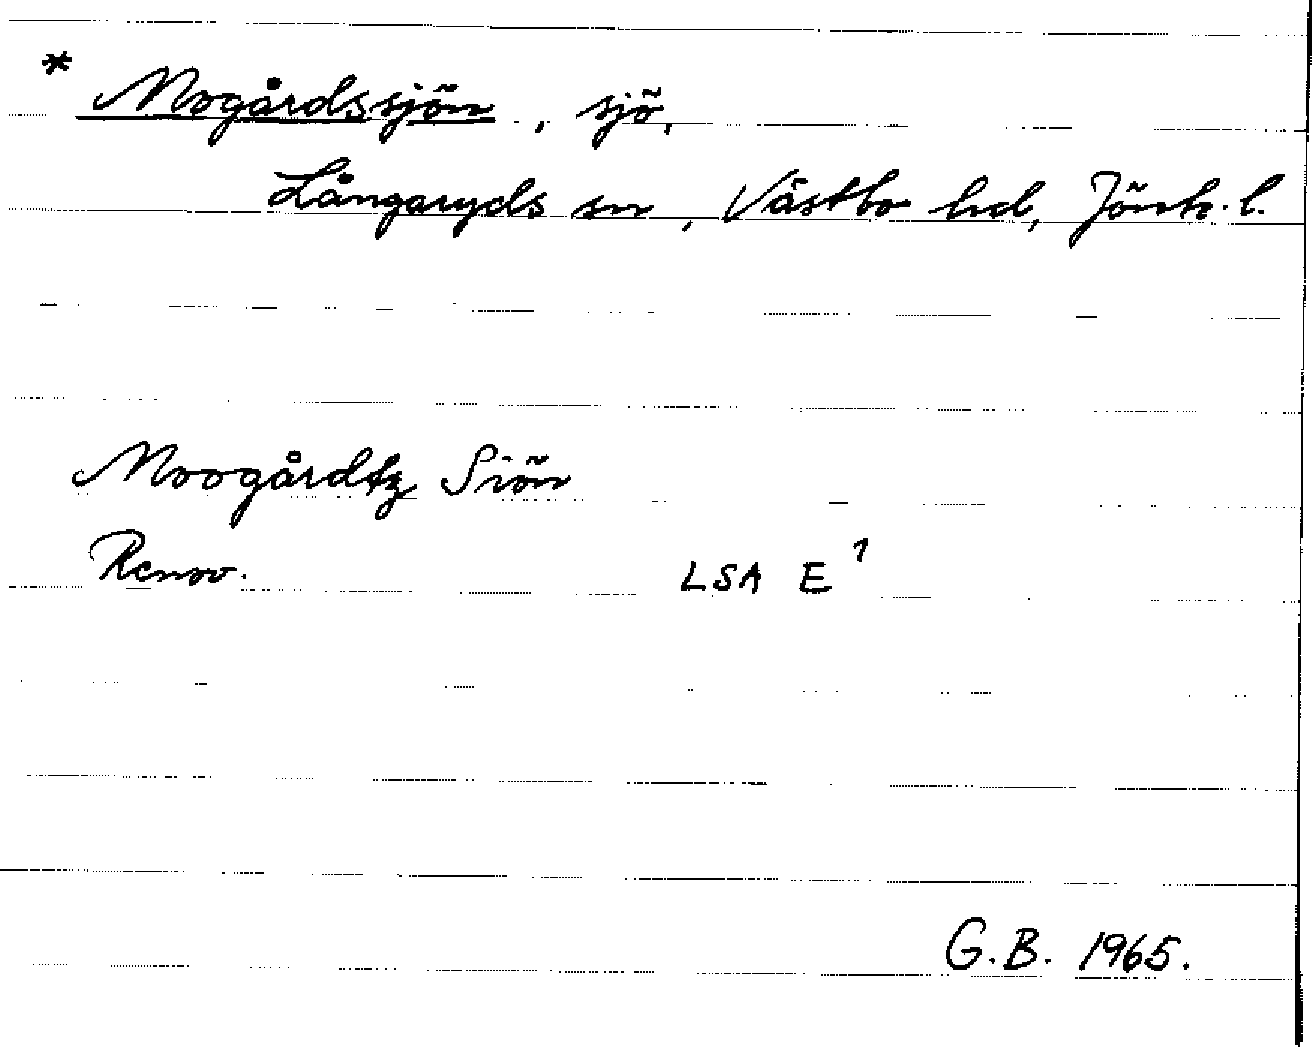 * Mogårdssjön, sjö,
Långaryds sn, Västbo hd, Jönk. l.
Moogårdtz Siön
Renov. LSA E¹
G.B. 1965.